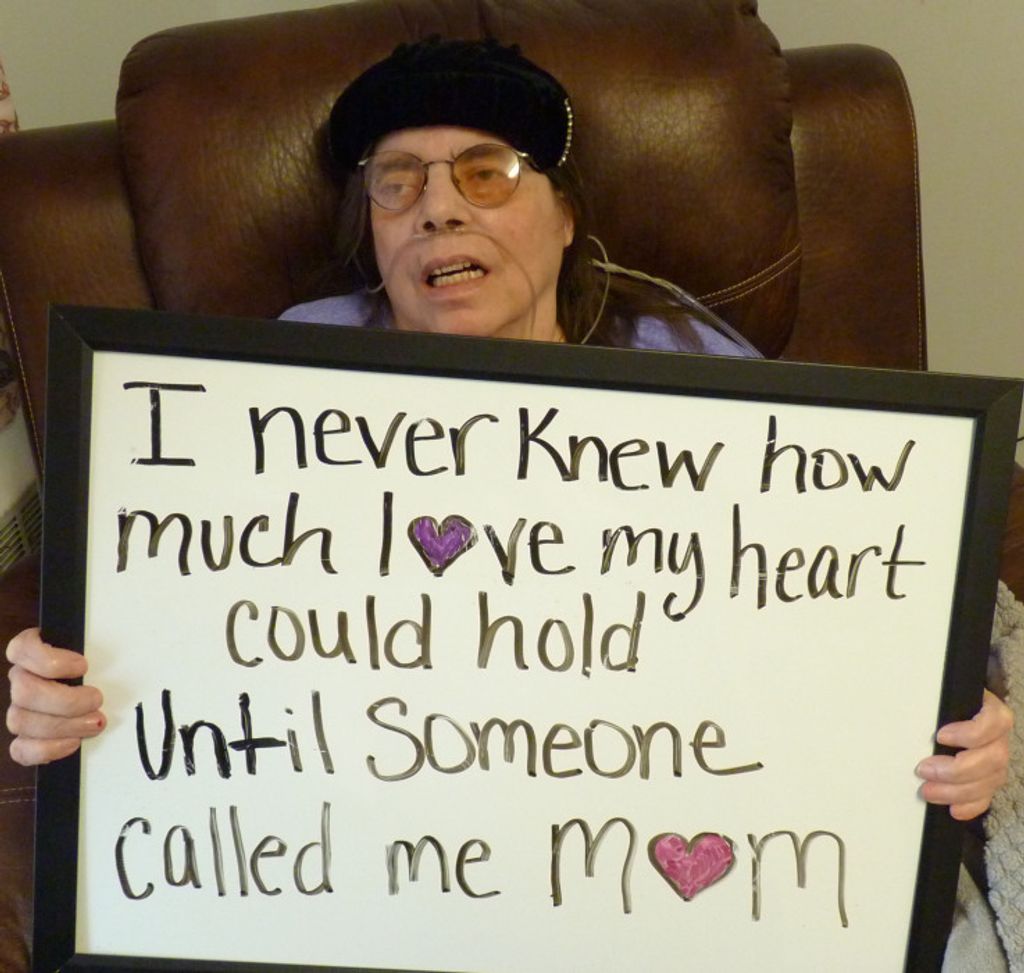 I never knew how
much love my heart
could hold
Until Someone
called me Mom